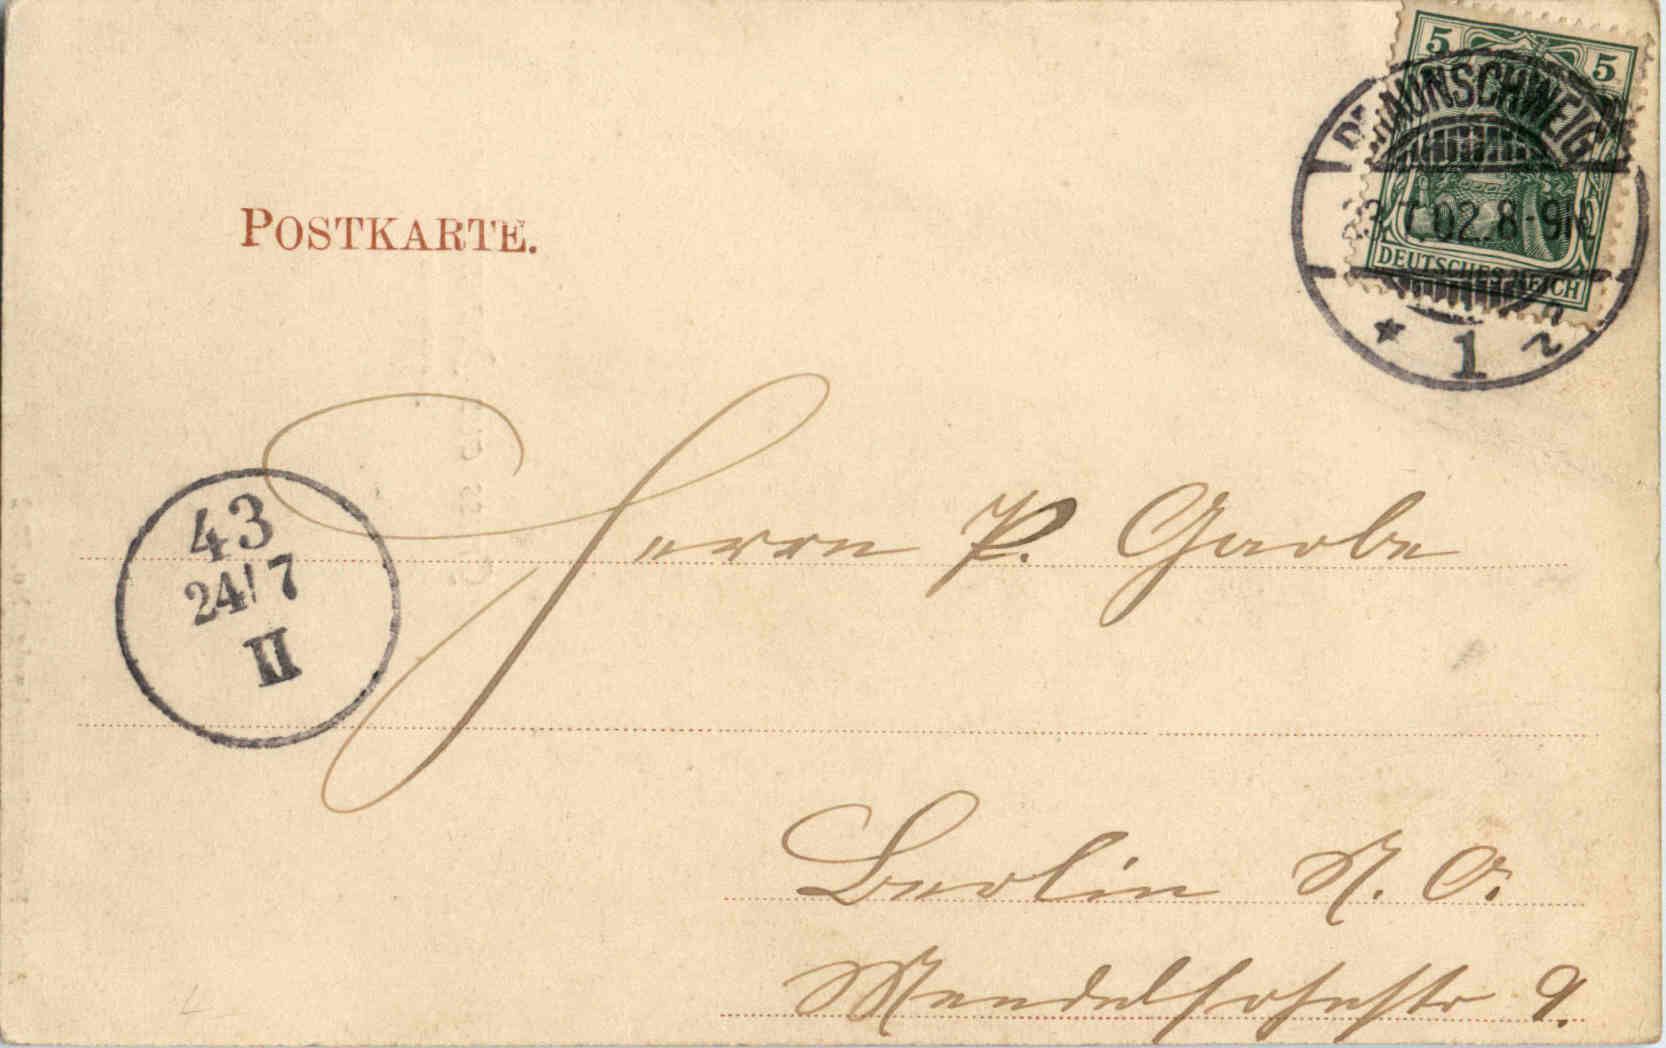 POSTKARTE.
5 5
BRAUNSCHWEIG
23.7.02.8-9N.
DEUTSCHES REICH
* 1 n
43
24/7
II
Herrn P. Garbe
Berlin N. O.
Mendelsohnstr 9.